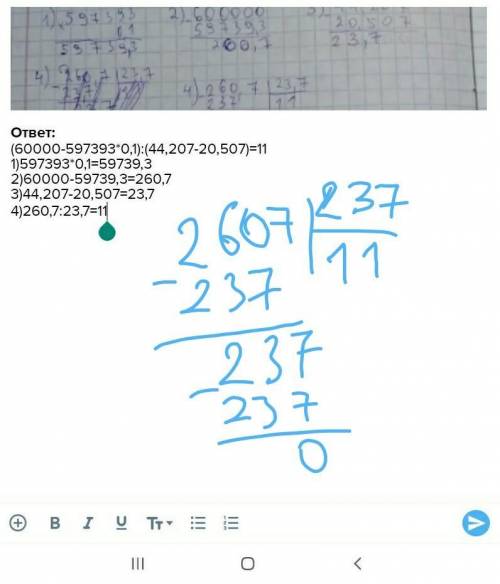 1) 597393
0,1
59739,3
2) 600000
59739,3
260,7
20,507
23,7
4) 260,7 | 23,7
237
4) 260,7 | 23,7
237 | 11
Ответ:
(60000-597393*0,1):(44,207-20,507)=11
1)597393*0,1=59739,3
2)60000-59739,3=260,7
3)44,207-20,507=23,7
4)260,7:23,7=11
2607 | 237
- 237 | 11
237
- 237
0
B I U TT